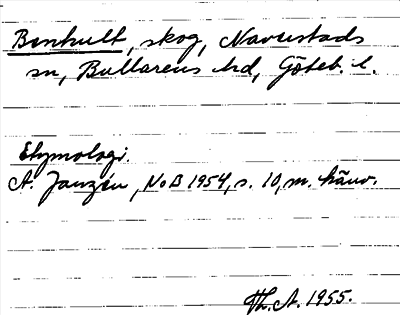 Benhult, skog, Naverstads
sn, Bullarens hd, Göteb. l.
Etymologi.
A. Janzén, NoB 1954, s. 10, m. hänv.
Th. A. 1955.